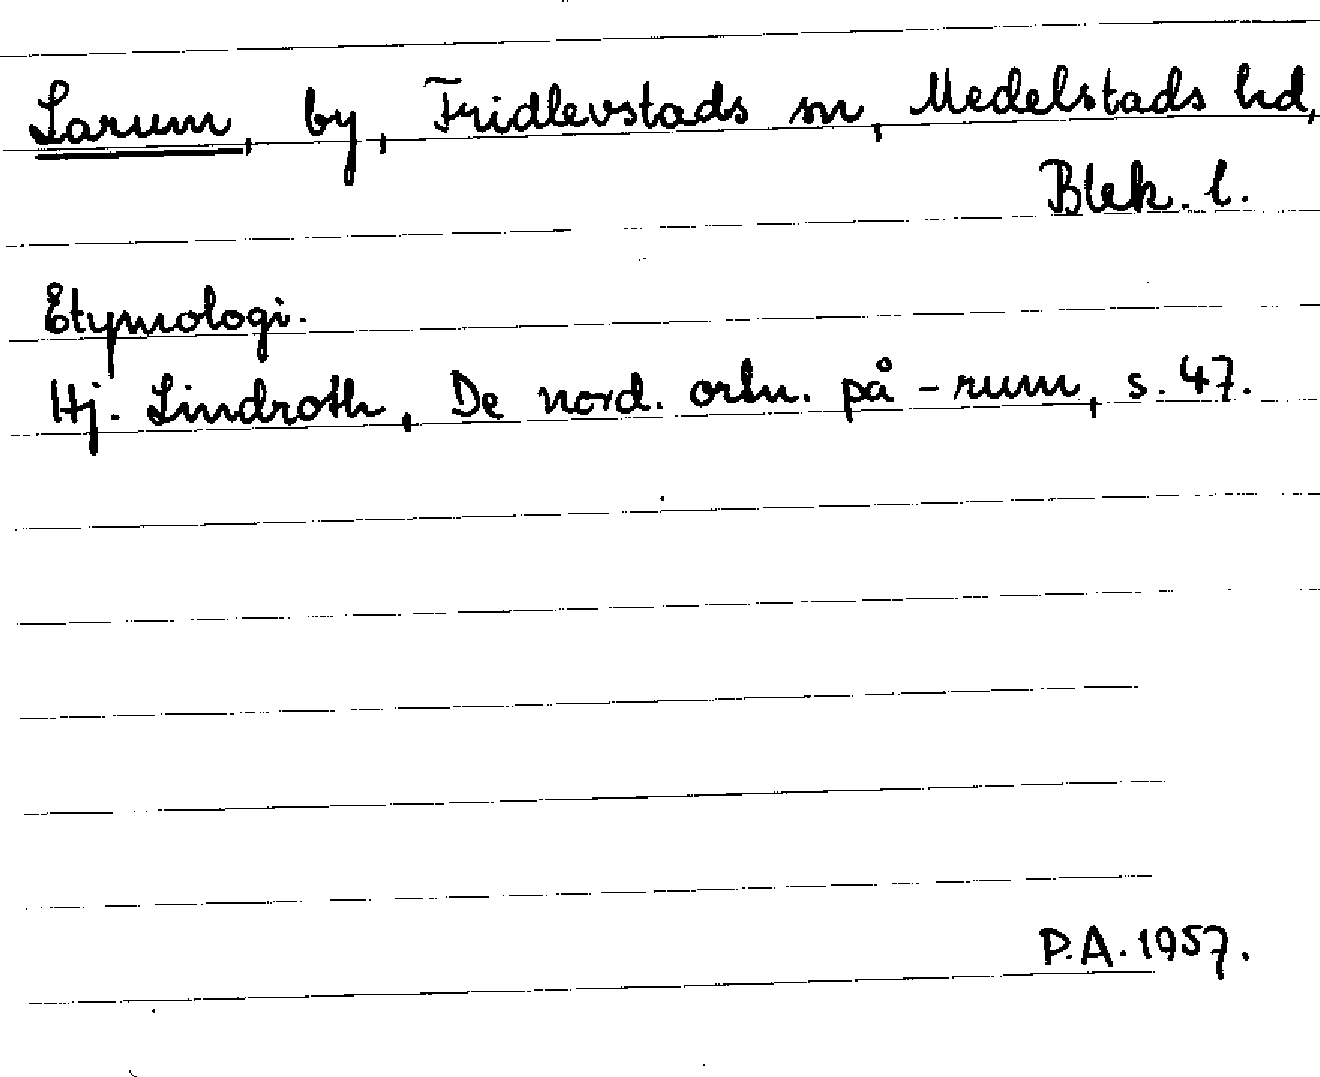 Larum, by, Fridlevstads sn, Medelstads hd,
Blek. l.
Etymologi.
Hj. Lindroth, De nord. ortn. på -rum, s. 47.
P.A. 1957.